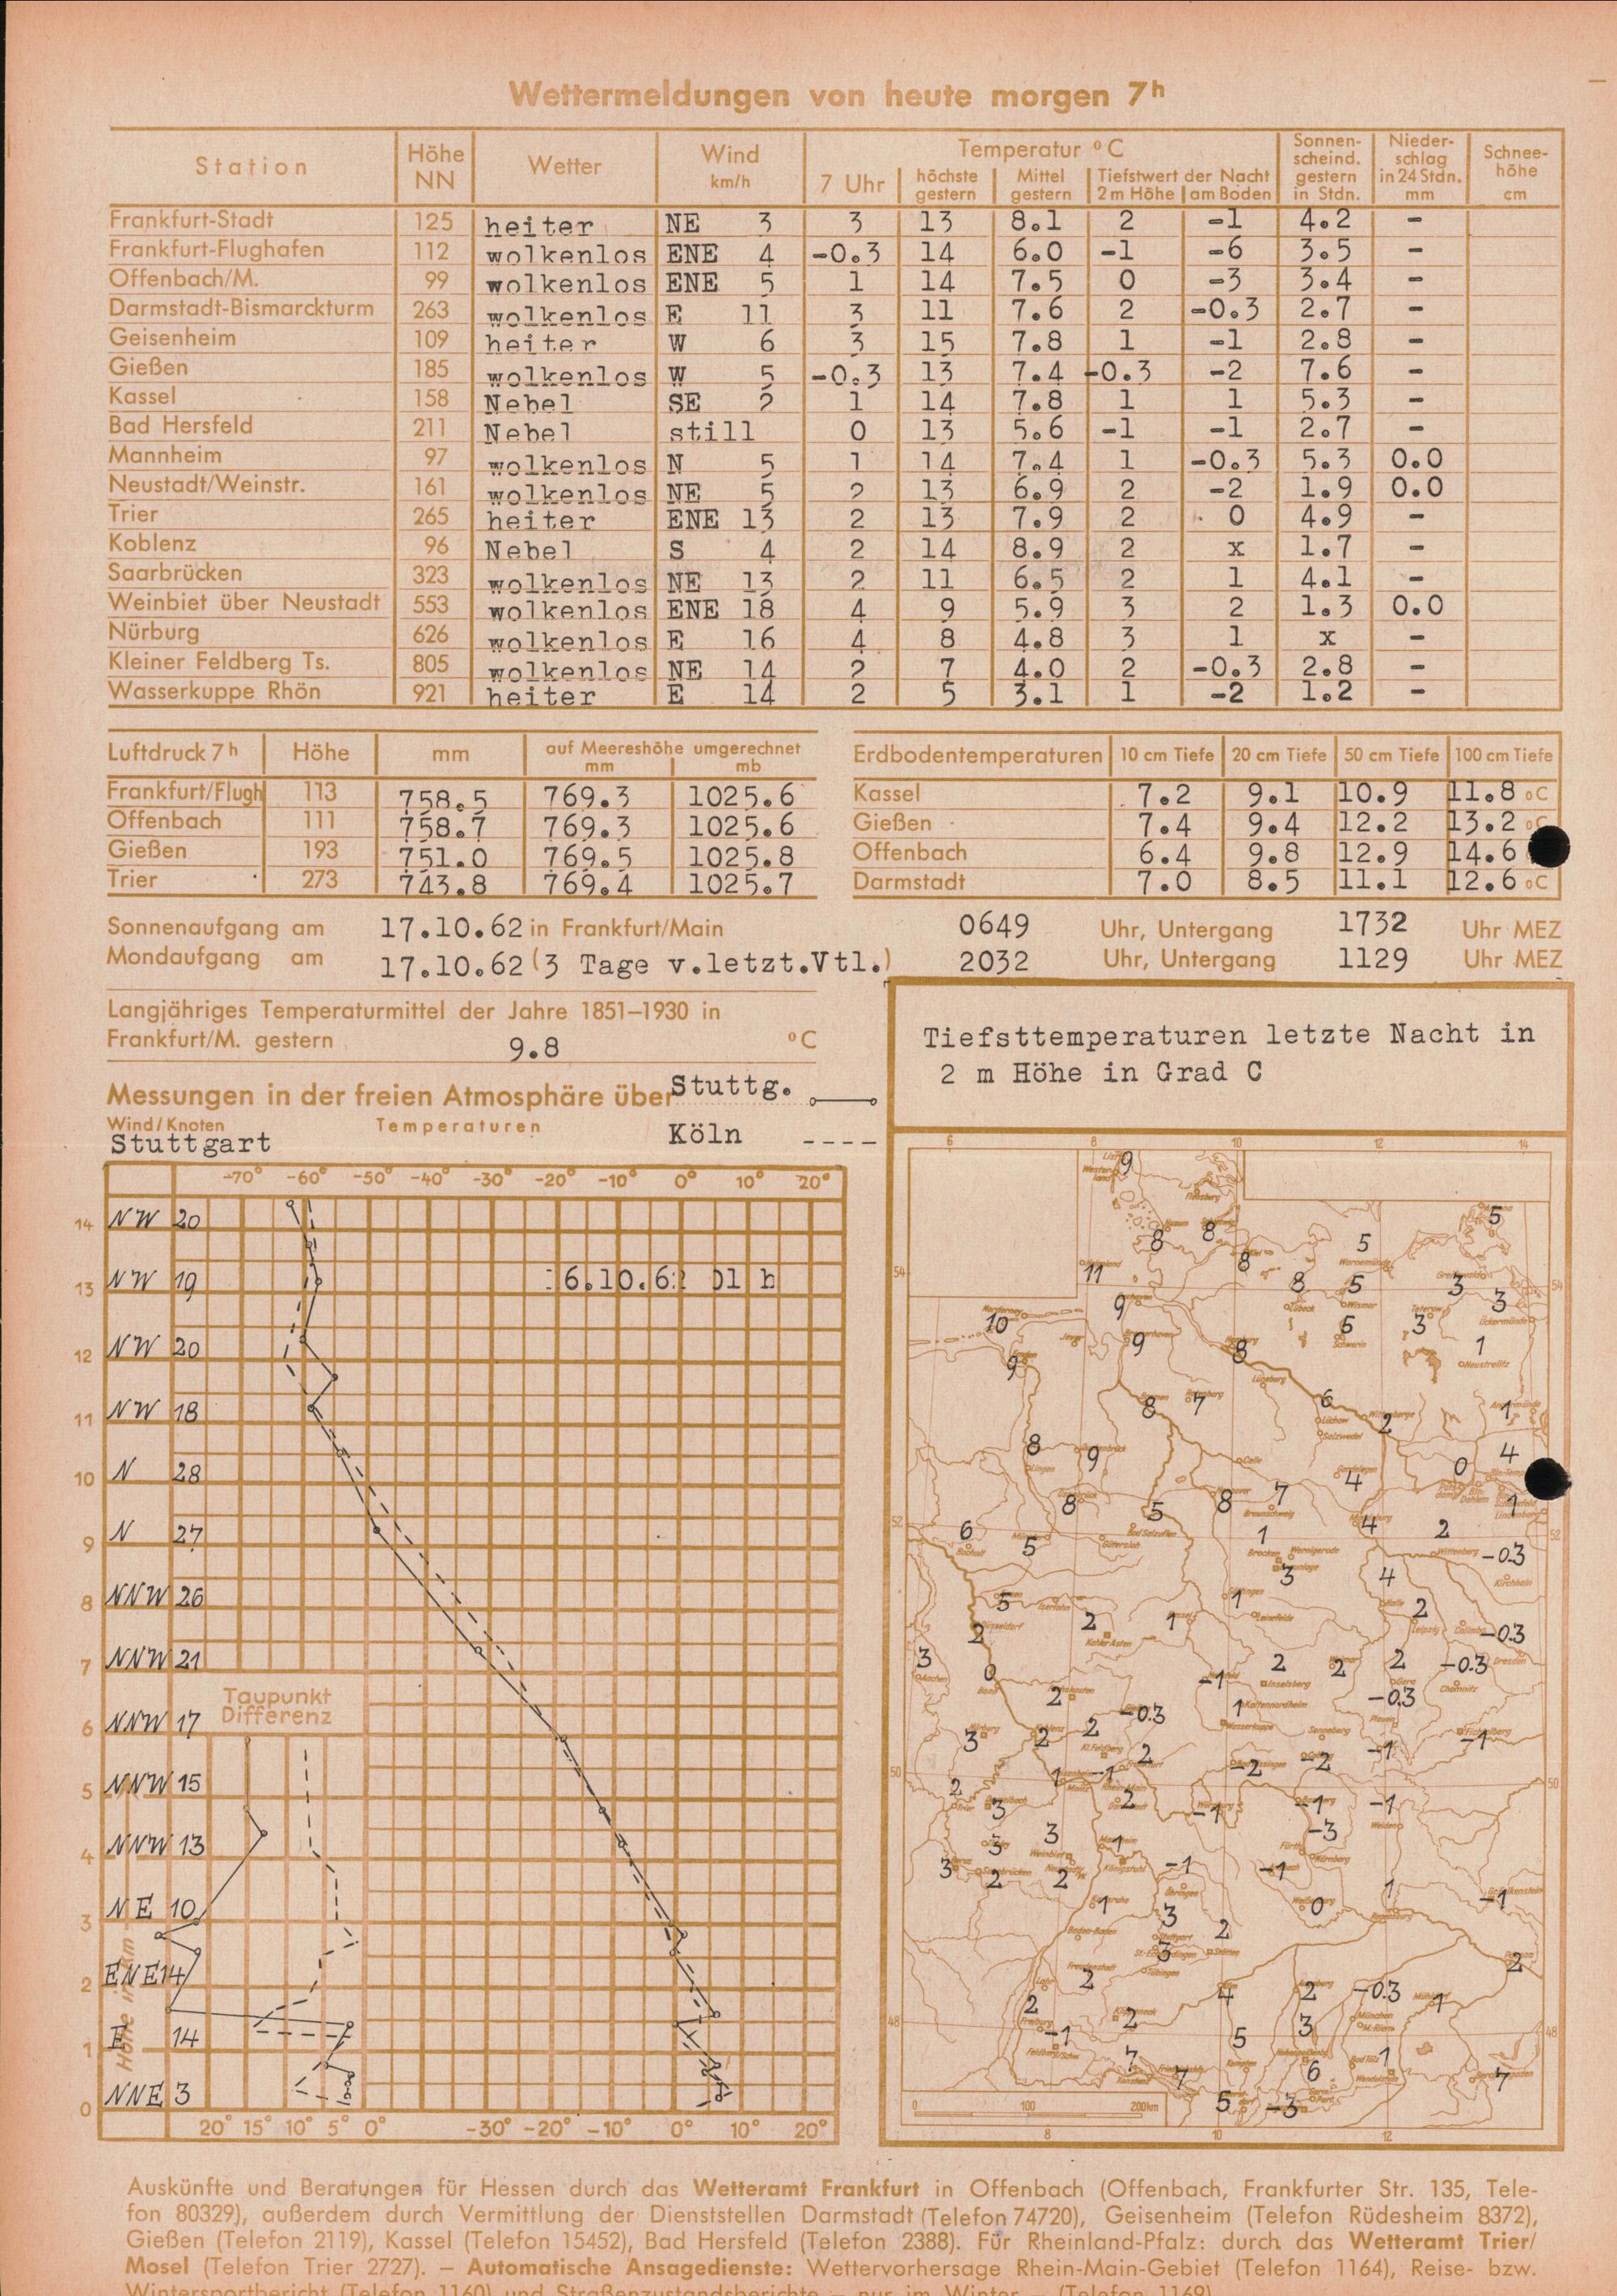 Wettermeldungen von heute morgen 7h
Station Höhe NN Wetter Wind km/h Temperatur °C Sonnen-scheind. gestern in Stdn. Nieder-schlag in 24 Stdn. mm Schnee-höhe cm
7 Uhr höchste gestern Mittel gestern Tiefstwert der Nacht 2 m Höhe am Boden
Frankfurt-Stadt 125 heiter NE 3 3 13 8.1 2 -1 4.2 -
Frankfurt-Flughafen 112 wolkenlos ENE 4 -0.3 14 6.0 -1 -6 3.5 -
Offenbach/M. 99 wolkenlos ENE 5 1 14 7.5 0 -3 3.4 -
Darmstadt-Bismarckturm 263 wolkenlos E 11 3 11 7.6 2 -0.3 2.7 -
Geisenheim 109 heiter W 6 3 15 7.8 1 -1 2.8 -
Gießen 185 wolkenlos W 5 -0.3 13 7.4 -0.3 -2 7.6 -
Kassel 158 Nebel SE 2 1 14 7.8 1 1 5.3 -
Bad Hersfeld 211 Nebel still 0 13 5.6 -1 -1 2.7 -
Mannheim 97 wolkenlos N 5 1 14 7.4 1 -0.3 5.3 0.0
Neustadt/Weinstr. 161 wolkenlos NE 5 2 13 6.9 2 -2 1.9 0.0
Trier 265 heiter ENE 13 2 13 7.9 2 0 4.9 -
Koblenz 96 Nebel S 4 2 14 8.9 2 x 1.7 -
Saarbrücken 323 wolkenlos NE 13 2 11 6.5 2 1 4.1 -
Weinbiet über Neustadt 553 wolkenlos ENE 18 4 9 5.9 3 2 1.3 0.0
Nürburg 626 wolkenlos E 16 4 8 4.8 3 1 x -
Kleiner Feldberg Ts. 805 wolkenlos NE 14 2 7 4.0 2 -0.3 2.8 -
Wasserkuppe Rhön 921 heiter E 14 2 5 3.1 1 -2 1.2 -
Luftdruck 7h Höhe mm auf Meereshöhe umgerechnet mm mb
Frankfurt/Flugh 113 758.5 769.3 1025.6
Offenbach 111 758.7 769.3 1025.6
Gießen 193 751.0 769.5 1025.8
Trier 273 743.8 769.4 1025.7
Erdbodentemperaturen 10 cm Tiefe 20 cm Tiefe 50 cm Tiefe 100 cm Tiefe
Kassel 7.2 9.1 10.9 11.8 °C
Gießen 7.4 9.4 12.2 13.2 °C
Offenbach 6.4 9.8 12.9 14.6
Darmstadt 7.0 8.5 11.1 12.6 °C
Sonnenaufgang am 17.10.62 in Frankfurt/Main 0649 Uhr, Untergang 1732 Uhr MEZ
Mondaufgang am 17.10.62 (3 Tage v.letzt.Vtl.) 2032 Uhr, Untergang 1129 Uhr MEZ
Langjähriges Temperaturmittel der Jahre 1851–1930 in
Frankfurt/M. gestern 9.8 °C
Messungen in der freien Atmosphäre über Stuttg.
Wind/Knoten Temperaturen Köln ----
Stuttgart
-70° -60° -50° -40° -30° -20° -10° 0° 10° 20°
14 NW 20
13 NW 19 16.10.62 01 h
12 NW 20
11 NW 18
10 N 28
9 N 27
8 NNW 26
7 NNW 21
Taupunkt
Differenz
6 NNW 17
5 NNW 15
4 NNW 13
3 NE 10
2 ENE 14
1 E 14
0 NNE 3
Höhe in km
20° 15° 10° 5° 0° -30° -20° -10° 0° 10° 20°
Tiefsttemperaturen letzte Nacht in
2 m Höhe in Grad C
6 8 10 12 14
9
8 8 8 5 5
54 11 8 5 3 3 54
10 9 9 9 8 6 3 1
8 7 6 2 1
8 9 4 0 4
8 5 8 7 4 2 1
52 6 5 1 -0.3 52
5 3 4 2
2 2 1 1 -0.3
3 0 2 -1 2 2 2 -0.3
-0.3 1 -0.3
3 2 2 2 -2 -2 -1 -1
50 2 3 1 -1 2 -1 -1 -1 50
3 3 3 1 -1 -1 -3
2 2 1 3 2 0 1 -1
3 2
2 2 4 2 -0.3 1
48 -1 2 5 3 48
7 7 5 -3 6 1 7
0 100 200km
8 10 12
Auskünfte und Beratungen für Hessen durch das Wetteramt Frankfurt in Offenbach (Offenbach, Frankfurter Str. 135, Tele-
fon 80329), außerdem durch Vermittlung der Dienststellen Darmstadt (Telefon 74720), Geisenheim (Telefon Rüdesheim 8372),
Gießen (Telefon 2119), Kassel (Telefon 15452), Bad Hersfeld (Telefon 2388). Für Rheinland-Pfalz: durch das Wetteramt Trier/
Mosel (Telefon Trier 2727). — Automatische Ansagedienste: Wettervorhersage Rhein-Main-Gebiet (Telefon 1164), Reise- bzw.
Wintersportbericht (Telefon 1160) und Straßenzustandsberichte — nur im Winter — (Telefon 1169)